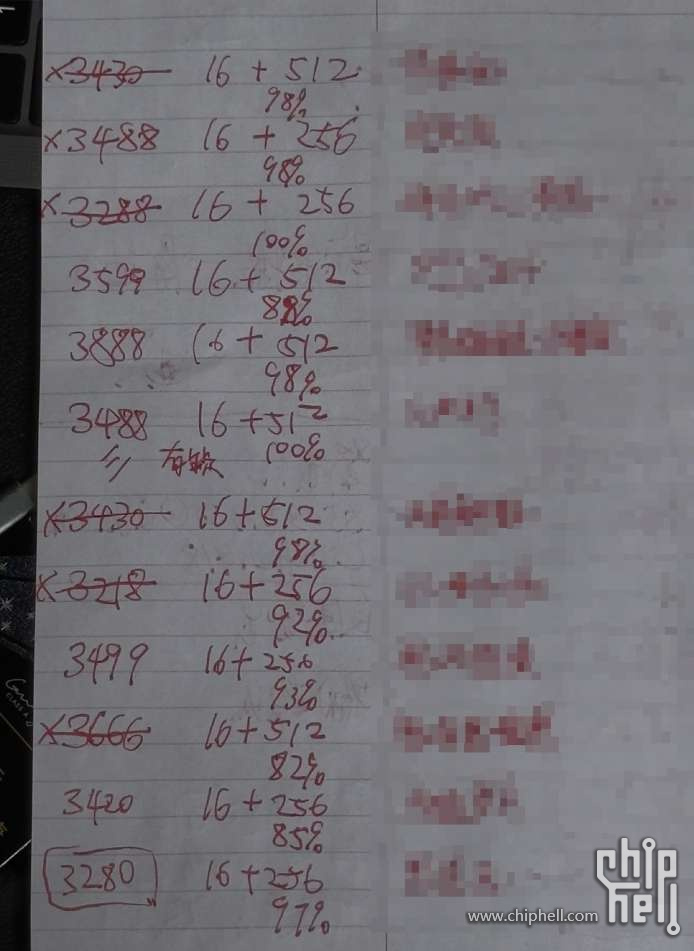 ×3430 16 + 512
98%
×3488 16 + 256
98%
×3288 16 + 256
100%
3599 16 + 512
88%
3888 16 + 512
98%
3488 16 + 512
有缺 100%
×3430 16 + 512
98%
×3218 16 + 256
92%
3499 16 + 256
93%
×3666 16 + 512
82%
3420 16 + 256
85%
3280 16 + 256
97%
chip hell
www.chiphell.com